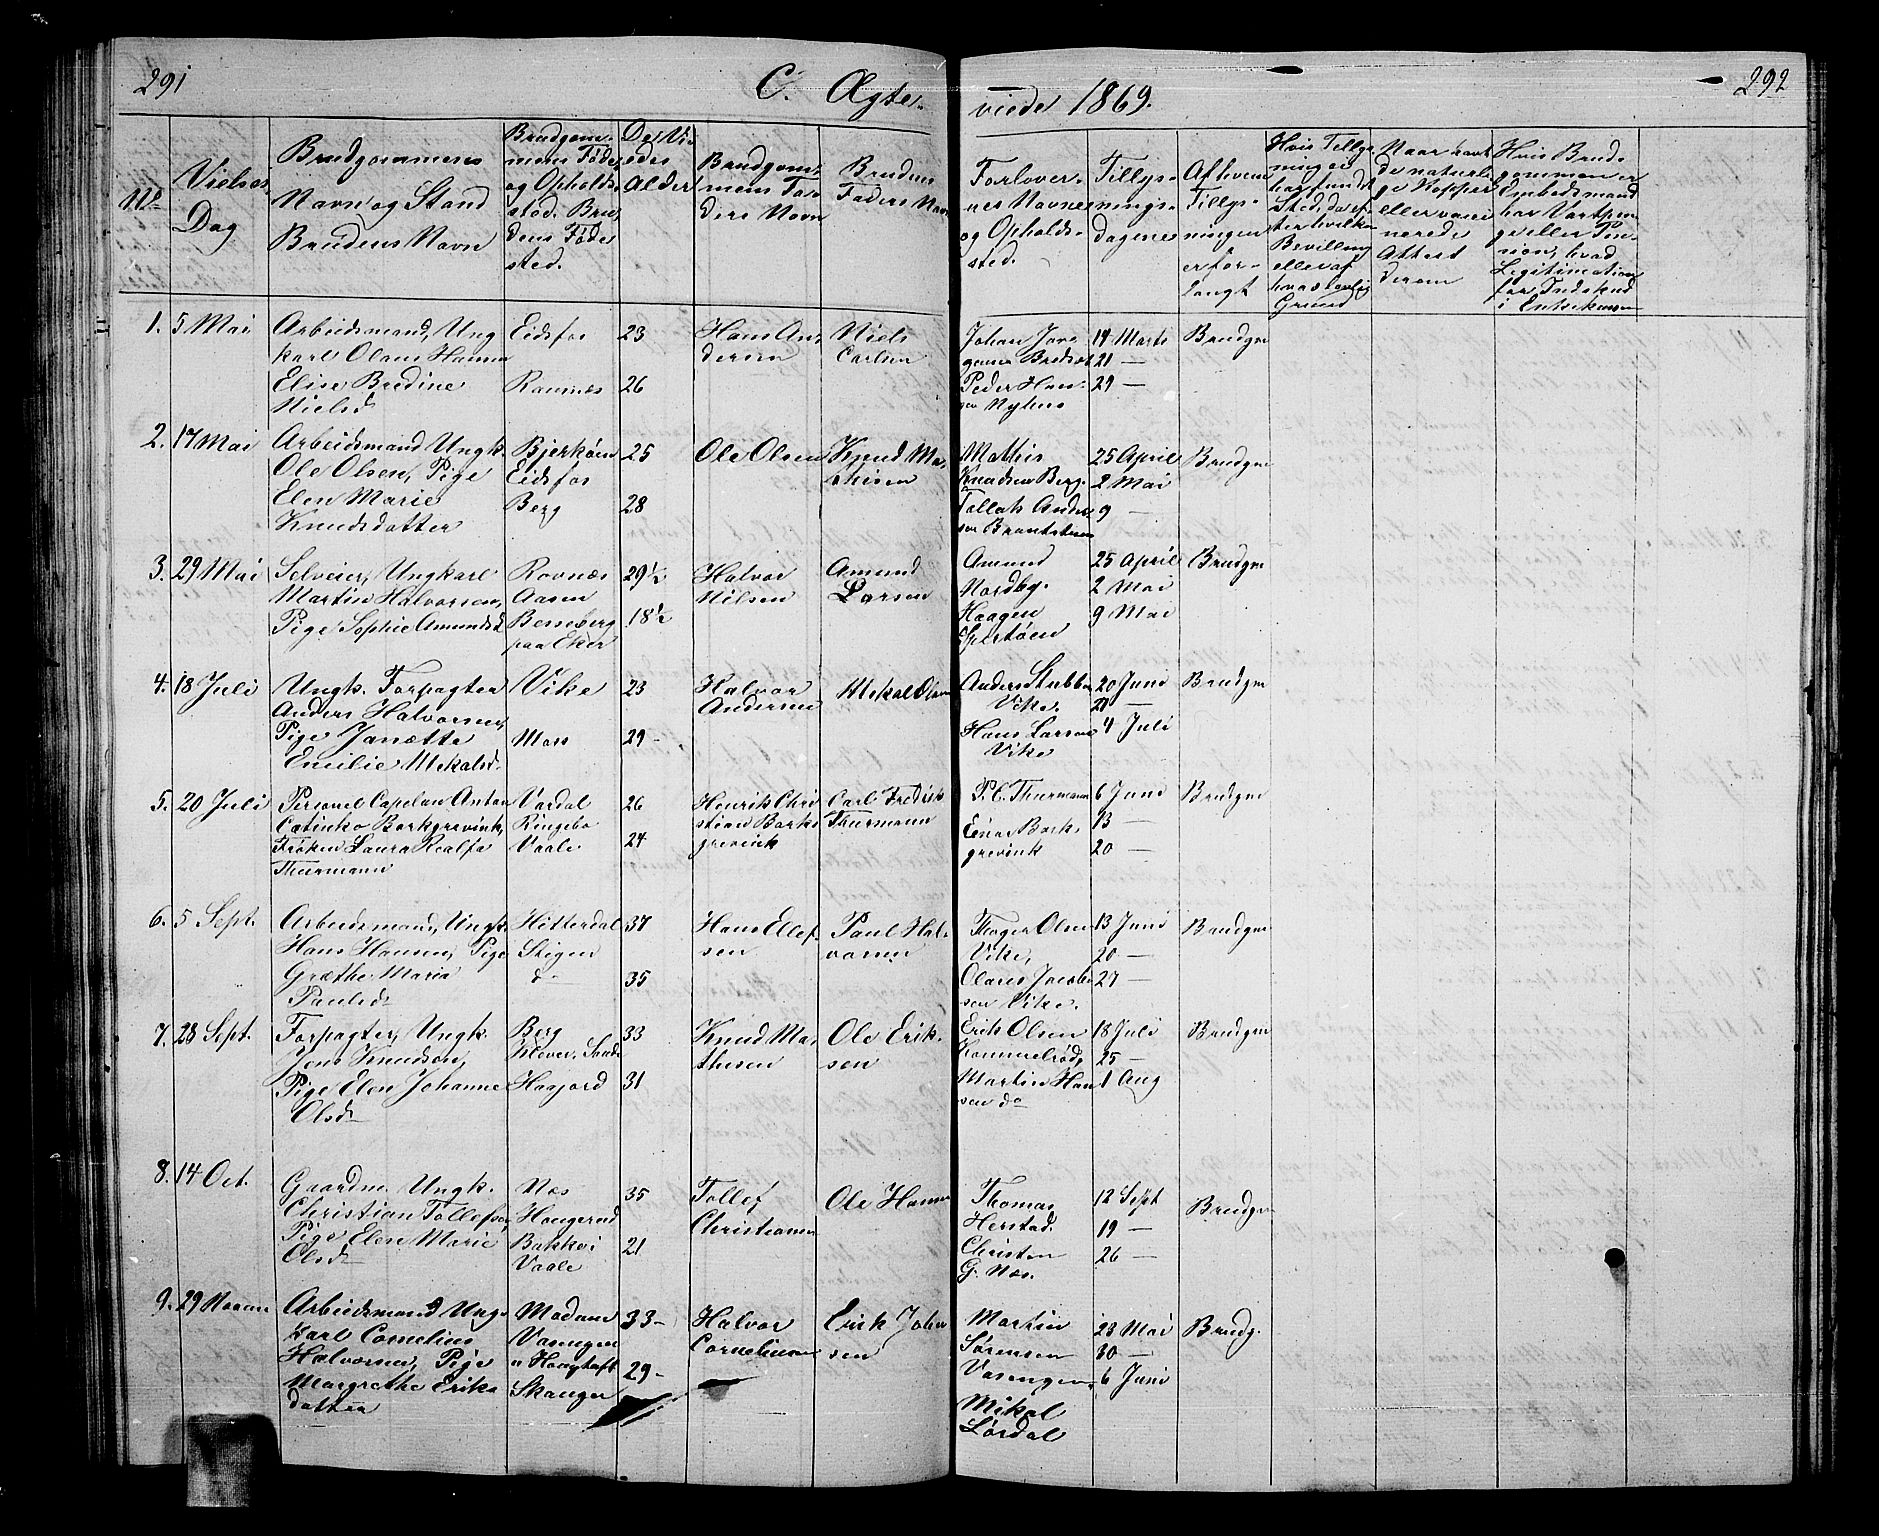 291
C. Ægte-
viede 1869.
292
No
Vielses
Dag
Brudgommens
Navn og Stand
Brudens Navn
Brudgom-
mens Føde
og Opholds-
sted. Bru-
dens Føde
sted.
De Vi-
edes
Alder
Brudgom-
mens Fa-
ders Navn
Brudens
Faders Navn
Forlover-
nes Navne
og Opholds-
sted.
Tillys-
nings-
dagene
Af hvem
Tillys-
ningen
er for-
langt
Hvis Tillys-
ning ei
har fundet
Sted, da ef-
ter hvilken
Bevilling
eller af
hvas lovlig
Grund
Naar havt
de naturli-
ge Kopper
eller vacci-
nerede
Attest
derom
Hvis Brud-
gommen er
Embedsmand
har Vartpen-
ge eller Pen-
sion, hvad
Legitimation
for Indskud
i Enkekassen
1. 5 Mai
Arbeidsmand, Ung
karl Olaus Hansen
Elise Bredine
Nielsd
Eidsfos
Ramnæs
23
26
Hans An-
dersen
Niels
Carlsen
Johan Jør-
gensen
Peder Han-
sen
14 Marts
21 —
29 —
Brudgm
2. 17 Mai
Arbeidsmand Ungk.
Ole Olsen, Pige
Elen Marie
Knudsdatter
Bjerkøen
Eidsfos
Berg
25
28
Ole Olsen
Knud Ma-
thisen
Mathis
Knudsen Berg.
Tollef Ander-
sen
25 April
2 Mai
9 —
Brudgm
3. 29 Mai
Selveier, Ungkarl
Martin Halvorsen,
Pige Sophie Amundsd
Rovnæs
Aasen
Besseberg
paa Eker
29½
18½
Halvor
Nilsen
Amund
Larsen
Amund
Nordby.
Haagen
25 April
2 Mai
9 Mai
Brudgm
4. 18 Juli
Ungk. Forpagter
Anders Halvorsen,
Pige Janette
Emilie Mikalsd.
Vike
Moss
23
29 -
Halvor
Andersen
Mikal Olsen
Anders Stubben
Vike.
Hans Larsen
Vike
20 Juni
21 —
4 Juli
Brudgm
5. 20 Juli
Personel Capelan Anton
Catinko Borkgrevink,
Frøken Laura Realfa
Thurmann
Vardal
Ringebo
Vaale
26
24
Henrik Chri
stian Bork-
grevink
Carl Fredrik
Thurmann
P. C. Thurmann
Einar Bork-
grevink
6 Juni
13 —
20 —
Brudgm
6. 5 Sept.
Arbeidsmand, Ungk.
Hans Hansen, Pige
Grethe Maria
Paulsd
Hitterdal
Stigen
d —
37
35
Hans Ellef-
sen
Paul Hal-
vorsen
Thoger Olsen
Vike,
Olaus Jacob-
sen Vike.
13 Juni
20 —
27 —
Brudgm
7. 28 Sept.
Forpagter, Ungk.
Jens Knudsen,
Pige Elen Johanne
Olsd
Berg
Klever. Sande
Haajord
33
31
Knud Ma-
thisen
Ole Erik-
sen
Erik Olsen
Kommelrød
Martin Han
sen do
18 Juli
25 —
1 Aug
Brudgm
8. 14 Oct.
Gaardm. Ungk.
Christian Tollefsen
Pige Elen Marie
Olsd
Næs
Haugerud
Bakke i
Vaale
35
21
Tollef
Christiansen
Ole Hansen
Thomas
Herstad
Christen
G. Næs.
12 Sept
19 —
26 —
Brudgm
9. 29 Novem
Arbeidsmand Ung-
karl Cornelius
Halvorsen, Pige
Margrethe Eriks
datter
Vasengen
Skauger
33-
29-
Halvor
Corneliusen
Erik Johan
sen
Martin
Sørensen
Vasengen
Mikal
Lørdal
23 Mai
30 —
6 Juni
Brudg.